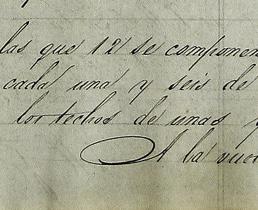 las que 12 se componen
cada una y seis de
los techos de unas y
A la vuel